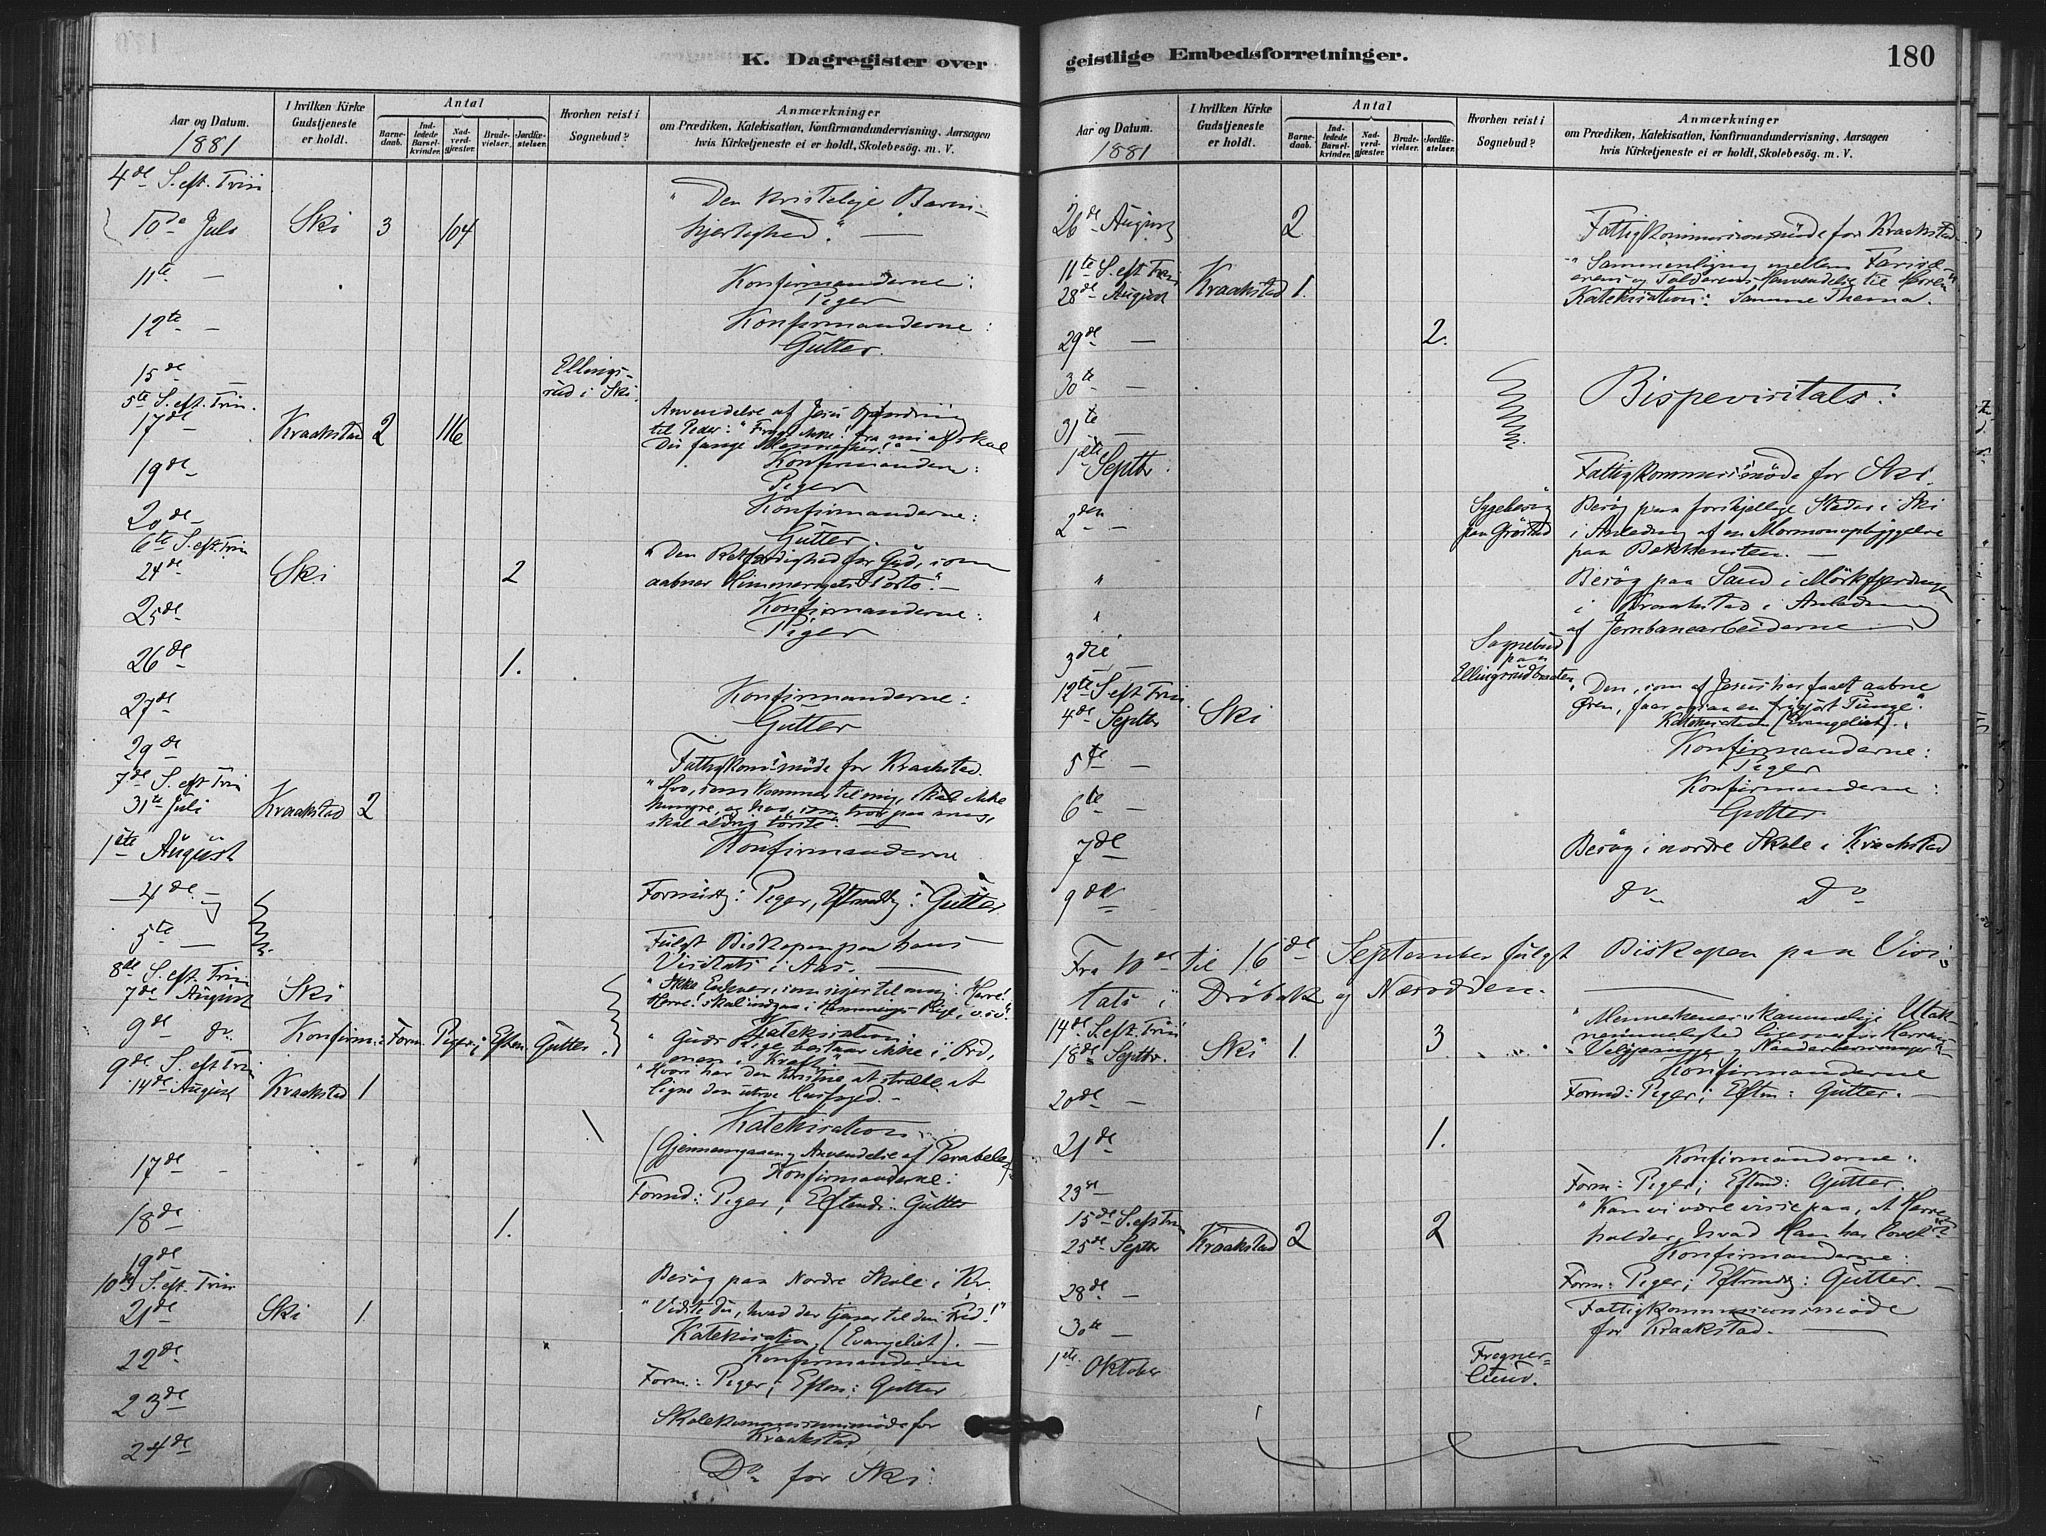 K. Dagregister over
Aar og Datum.
1881
I hvilken Kirke
Gudstjeneste
er holdt.
Antal
Barne-
daab.
Ind-
ledede
Barsel-
kvinder.
Nad-
verd-
gjæster.
Brude-
vielser.
Jordfæ-
stelser.
Hvorhen reist i
Sognebud?
Anmærkninger
om Prædiken, Katekisation, Konfirmandundervisning. Aarsagen
hvis Kirketjeneste ei er holdt, Skolebesög. m. V.
4de S. eft. Trin
10de Juli Ski 3 104 "Den kristelige Barm-
hjertighed." —
11te — Konfirmanderne:
Piger
12te — Konfirmanderne:
Gutter.
15de — Ellings-
rud i Ski.
5te S. eft. Trin.
17de Kraakstad 2 116 Anvendelse af Jesu
til Peder: "Frygt ikke! fra nu af skal
Du fange Mennesker!" —
19de Konfirmanderne:
Piger
20de Konfirmanderne:
Gutter.
6te S. eft. Trin
24de Ski 2 "Den Retfærdighed for Gud, som
aabner Himmeriges Porte". —
25de Konfirmanderne:
Piger
26de 1.
27de Konfirmanderne:
Gutter
29de Fattigkomsmöde for Kraakstad.
7de S. eft Trin
31te Juli Kraakstad 2 "Hvo, som kommer til mig, skal ikke
hungre, og hvo, som tror paa mig,
skal aldrig törste". —
1ste August Konfirmanderne
4de — Formidg: Piger, Eftmidg: Gutter
5te — Fulgt Biskopen paa hans
Visitats i Aas. —
8de S. eft. Trin
7de August Ski "Ikke Enhver, som siger til mig: Herre!
Herre! skal indgaa i Himmerigs Rige, o.s.v."
Katekisation.
9de do. Konfirm: Form. Piger; Eftm. Gutter. "Guds Rige bestaar ikke i Ord,
men i Kraft". —
9de S. eft Trin
14de August Kraakstad 1 "Hvori har den Kristne at stræbe at
ligne den utro Husfoged. —
Katekisation
(Gjennemgaaen og Anvendelse af Parabelen).
17de Konfirmanderne:
Formd: Piger; Eftmd: Gutter
18de 1.
19de Besög paa Nordre Skole i Kr.
10de S. eft. Trin
21de Ski 1. "Vidste du, hvad der tjener til din Fred!"
Katekisation (Evangeliet). —
22de Konfirmanderne
Form.: Piger; Eftm: Gutter
23de Skolekommissionsmöde for
Kraakstad
24de Do for Ski.
geistlige Embedsforretninger.
180
Aar og Datum.
1881
I hvilken Kirke
Gudstjeneste
er holdt.
Antal
Barne-
daab.
Ind-
ledede
Barsel-
kvinder.
Nad-
verd-
gjæster.
Brude-
vielser.
Jordfæ-
stelser.
Hvorhen reist i
Sognebud?
Anmærkninger
om Prædiken, Katekisation, Konfirmandundervisning, Aarsagen
hvis Kirketjeneste ei er holdt, Skolebesög. m. V.
26de August 2 Fattigkommissionsmöde for Kraakstad
11te S. eft Trin
28de August Kraakstad 1. "Sammenligning mellem Farisæ-
erens og Tolderens Henvendelse til Herren"
Katekisation: Samme Thema.
29de — 2.
30te — Bispevisitats:
31te —
1ste Septbr. Fattigkommissmöde for Ski.
2den — Sygebesög
paa Gröstad
Besög paa forskjellige Steder i Ski
i Anledning af en Mormonopbyggelse
paa —
" Besög paa Sand i
i Kraakstad i Anledning
" af Jernbanearbeiderne —
3die — Sognebud
paa
12te S. eft Trin
4de Septbr Ski "Den, som af Jesus har faaet aabne
Øren, faar ogsaa en frigjort Tunge".
Katekisation (Evangeliet).
5te — Konfirmanderne:
Piger
6te — Konfirmanderne:
Gutter
7de Besög i nordre Skole i Kraakstad
9de do Do
Fra 10de til 16de September fulgt Biskopen paa Visi-
tats i Dröbak og Næsodden. —
14de S. eft Trin
18de Septbr. Ski 1. 3. "Menneskenes skammelige Utak-
nemmelighed ligeoverfor Herrens
Velgjerninger og Naadebevisninger"
Konfirmanderne
20de — Formd: Piger; Eftm: Gutter. —
21de 1.
Konfirmanderne:
23de — Form: Piger; Eftmd: Gutter.
15de S. eft Trin
25de Septbr Kraakstad 2 2 "Kan vi være visse paa, at Herren
holder, hvad Han har lovet"?
Konfirmanderne:
28de — Form: Piger; Eftermdg: Gutter. —
30te — Fattigkommissionsmöde
for Kraakstad. —
1ste Oktober